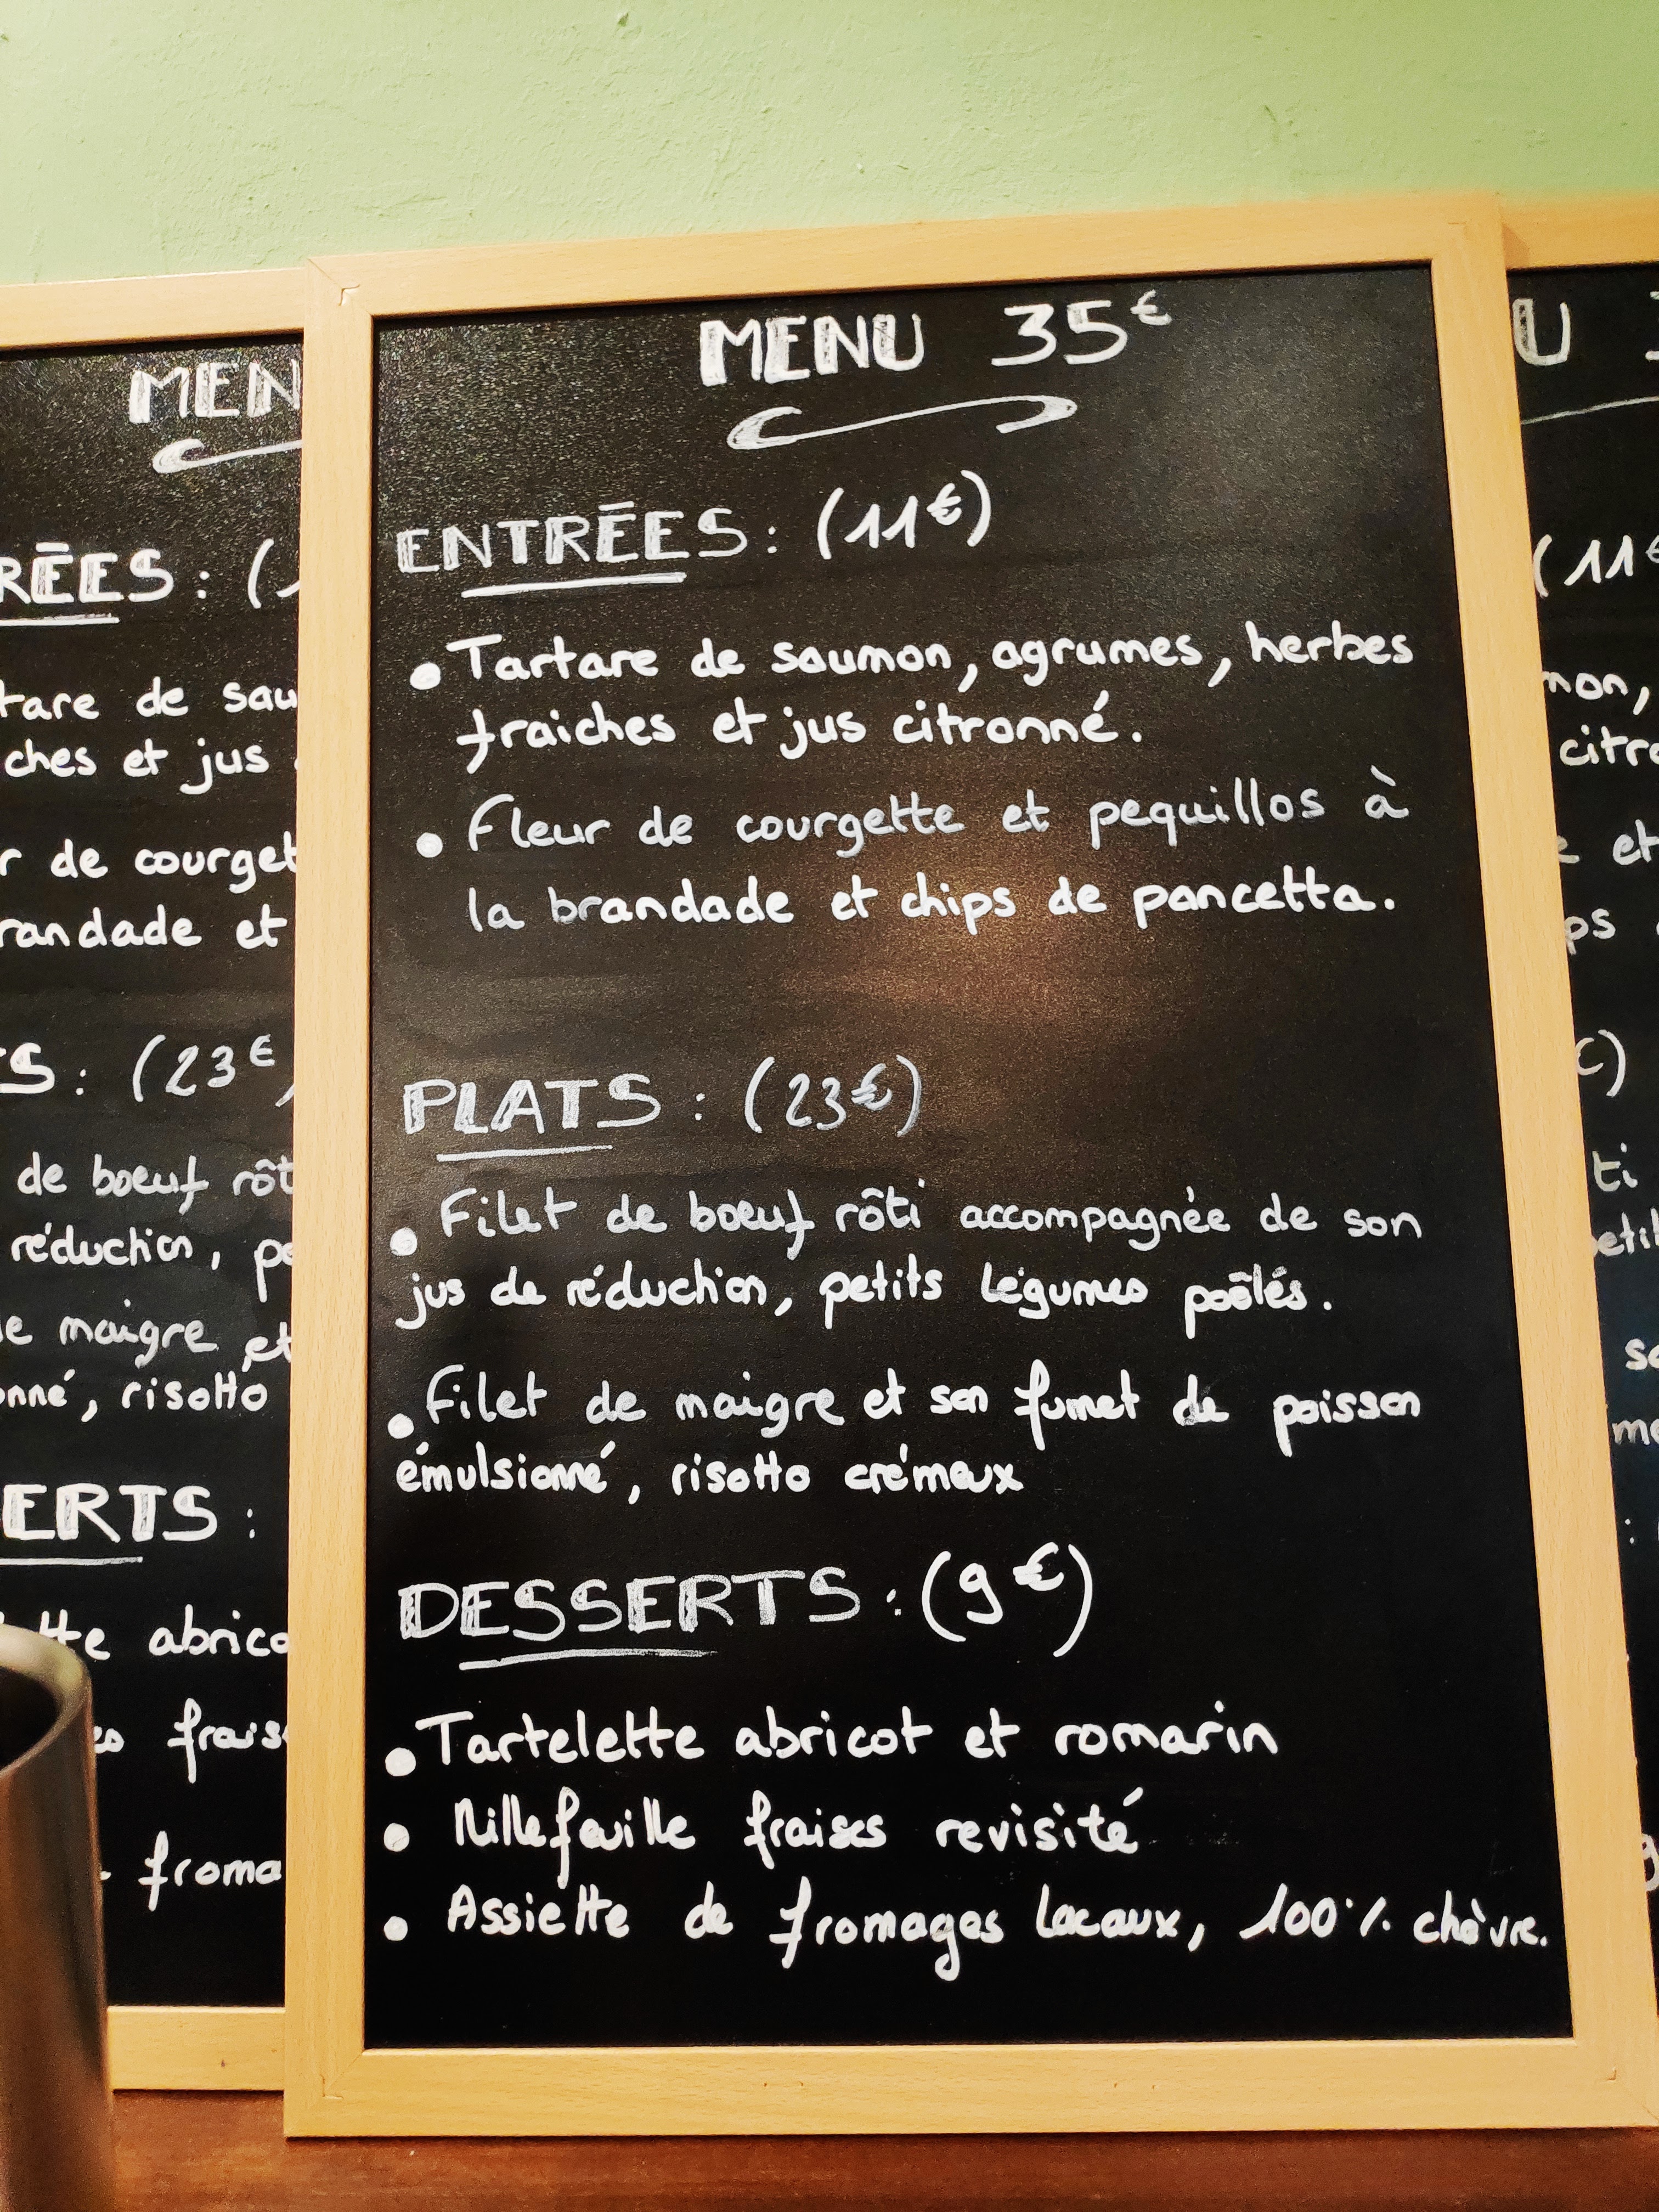 MENU 35€
ENTRÉES : (11€)
• Tartare de saumon, agrumes, herbes
fraiches et jus citronné.
• Fleur de courgette et pequillos à
la brandade et chips de pancetta.
PLATS : (23€)
• Filet de boeuf rôti accompagnée de son
jus de réduction, petits légumes poôlés.
• Filet de maigre et son fumet de poisson
émulsionné, risotto crémeux
DESSERTS : (9€)
• Tartelette abricot et romarin
• Millefeuille fraises revisité
• Assiette de fromages locaux, 100% chèvre.
MEN
RÉES : (1
tare de sau
ches et jus
r de courget
randade et
TS : (23€)
de boeuf rôt
réduction, pe
de maigre et
onné, risotto
ERTS :
tte abrico
es frais
froma
U 3
(11€
mon,
citro
e et
ps
€)
ti
petit
so
me
: